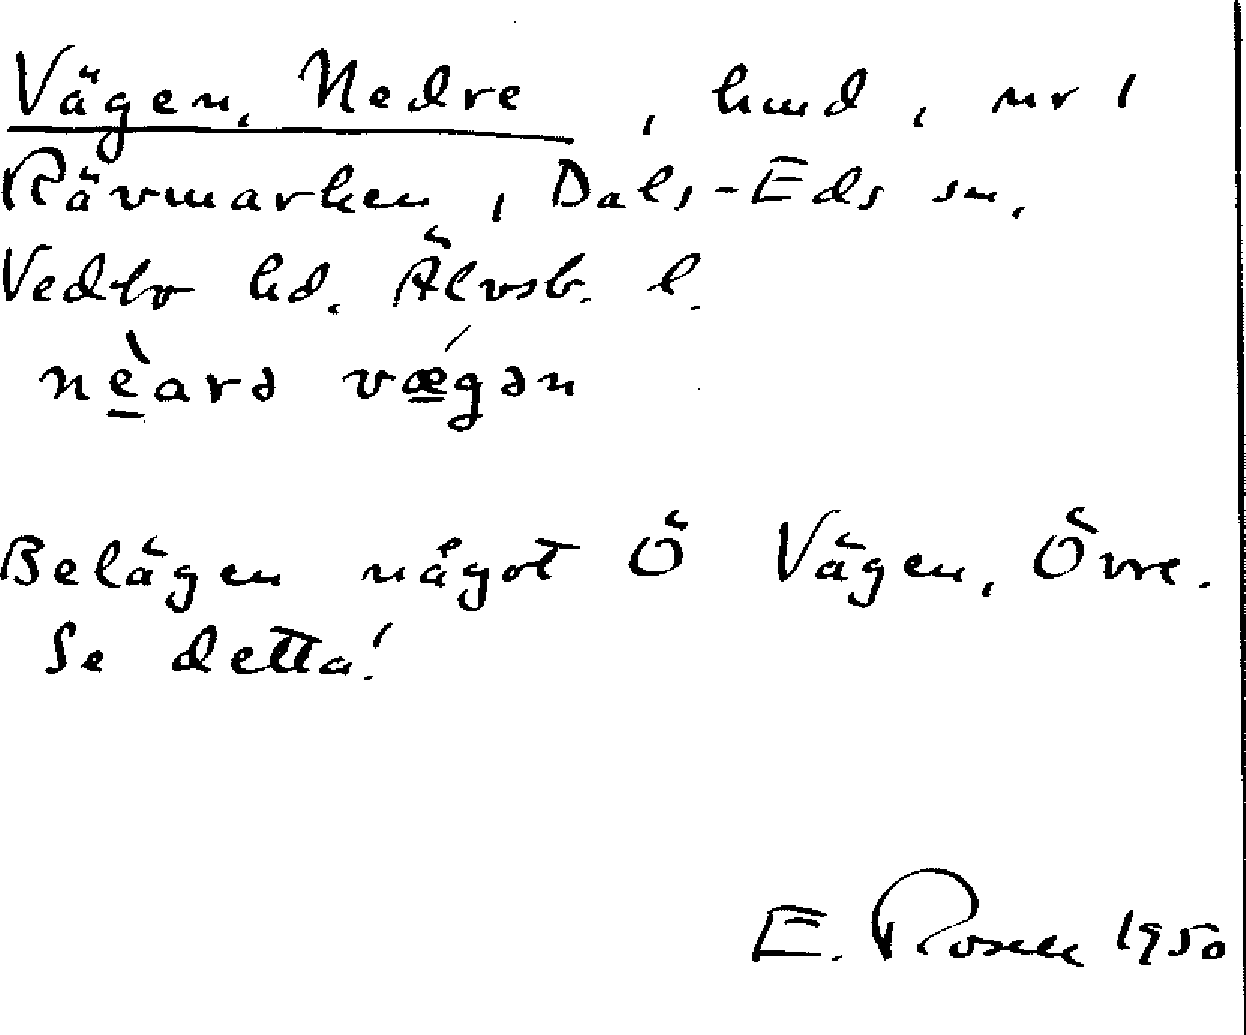 Vägen, Nedre, hmd, nr 1
Rävmarken, Dals-Eds sn,
Vedbo hd. Älvsb. l.
nèarə vǽgən
Belägen något Ö Vägen, Övre.
Se detta!
E. Rosell 1950